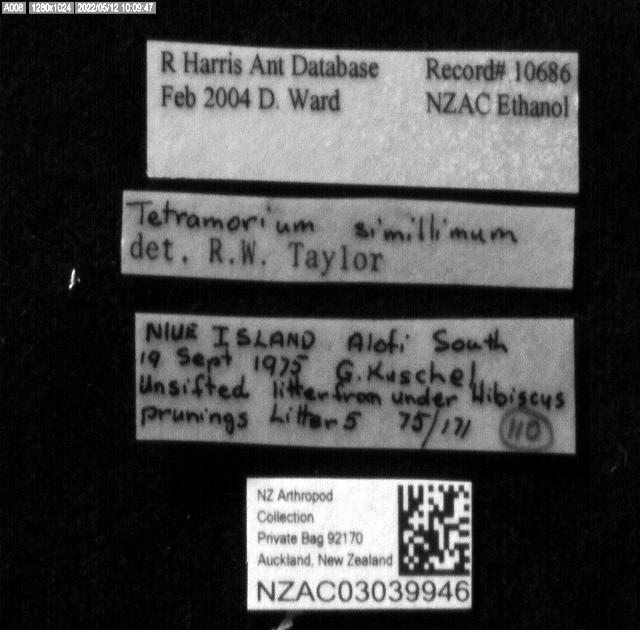 A008 1280x1024 2022/05/12 10:09:47
R Harris Ant Database Record# 10686
Feb 2004 D. Ward NZAC Ethanol
Tetramorium simillimum
det. R.W. Taylor
NIUE ISLAND Alofi South
19 Sept 1975 G. Kuschel
Unsifted litter from under Hibiscus
prunings Litter 5 75/171 110
NZ Arthropod
Collection
Private Bag 92170
Auckland, New Zealand
NZAC03039946